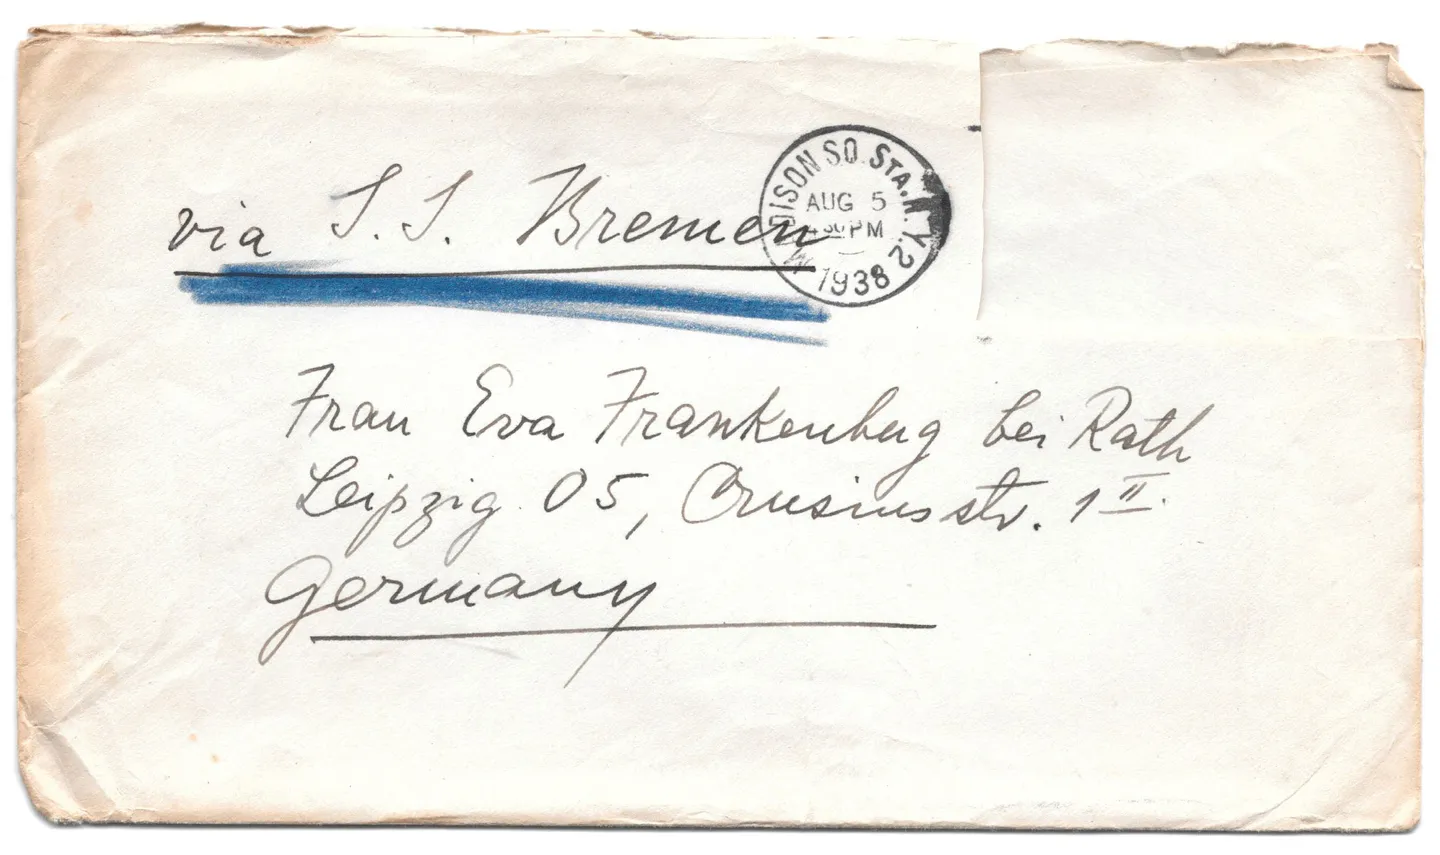 via S.S. Bremen
MADISON SQ. STA. N.Y. 2
AUG 5
4 30 PM
1938
Frau Eva Frankenberg bei Rath
Leipzig O5, Crusiusstr. 1 II.
Germany